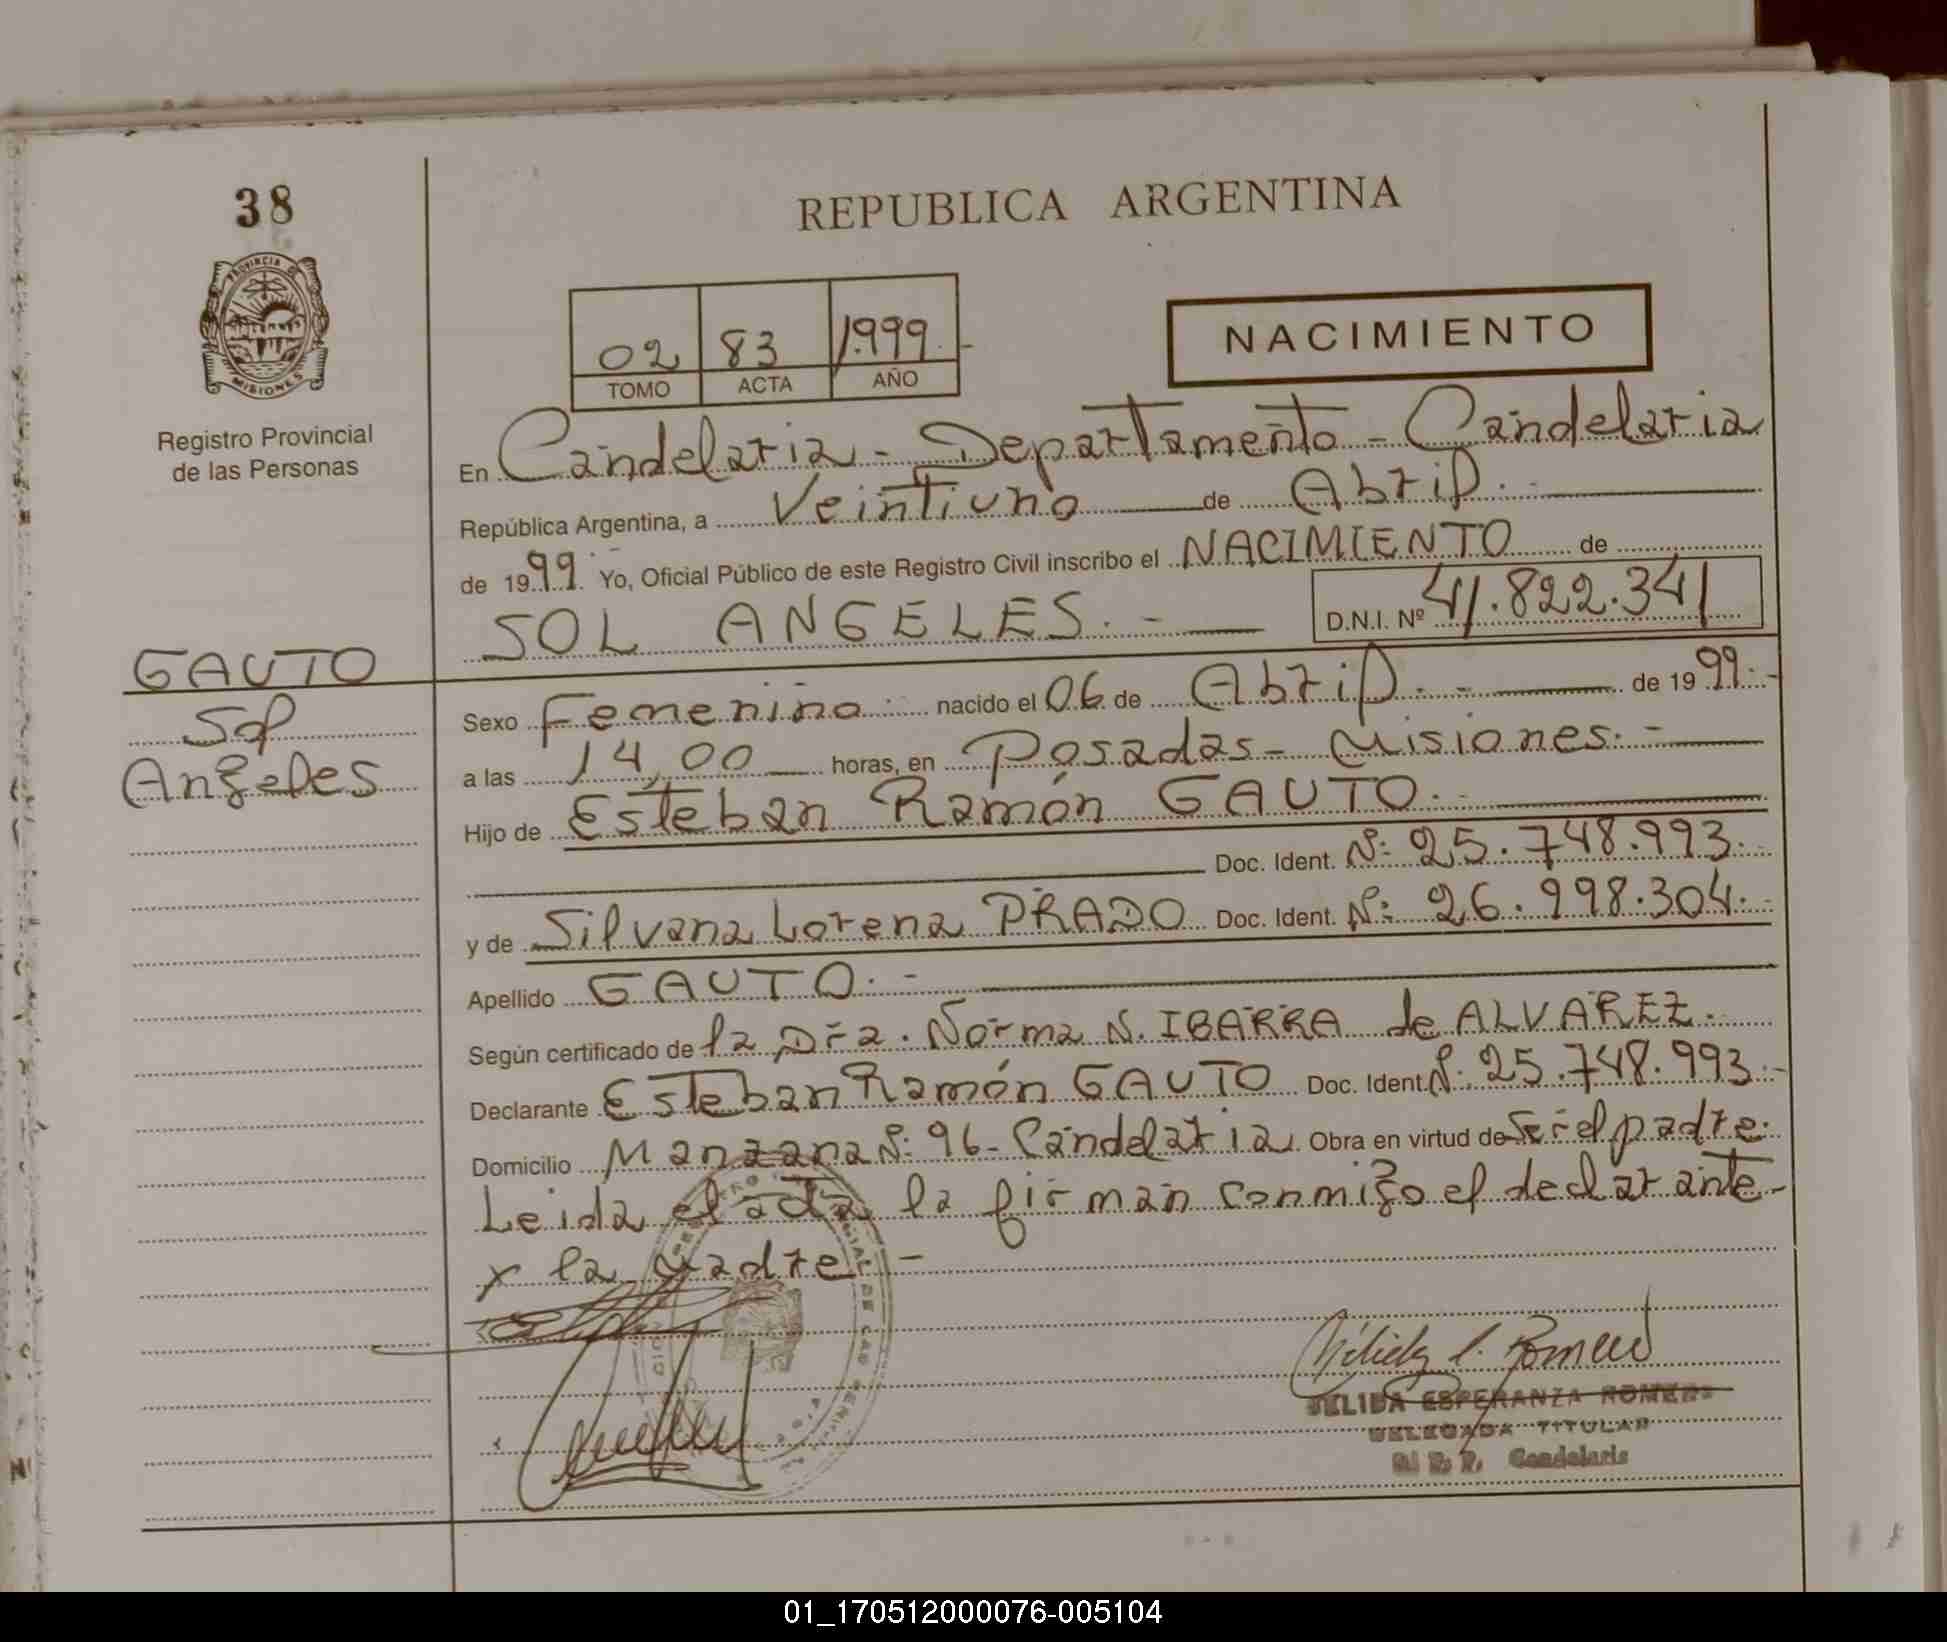 38
REPUBLICA ARGENTINA
PROVINCIA DE
MISIONES
02 83 1.999.-
TOMO ACTA AÑO
NACIMIENTO
Registro Provincial
de las Personas
En Candelaria - Departamento - Candelaria
República Argentina, a Veintiuno de Abril.-
de 1999. Yo, Oficial Público de este Registro Civil inscribo el NACIMIENTO de
SOL ANGELES.- D.N.I. Nº 41.822.341
GAUTO
Sol
Angeles
Sexo Femenino nacido el 06 de Abril.- de 1999.-
a las 14,00 horas, en Posadas - Misiones.-
Hijo de Esteban Ramón GAUTO.-
Doc. Ident. Nº: 25.748.993.-
y de Silvana Lorena PRADO Doc. Ident. Nº: 26.998.304.-
Apellido GAUTO.-
Según certificado de la Dra. Norma N. IBARRA de ALVAREZ.
Declarante Esteban Ramón GAUTO Doc. Ident. Nº: 25.748.993.-
Domicilio Manzana Nº: 96 - Candelaria Obra en virtud de ser el padre.
Leida el acta la firman conmigo el declarante
y la madre.-
DELEGADA TITULAR
Candelaria
01_170512000076-005104